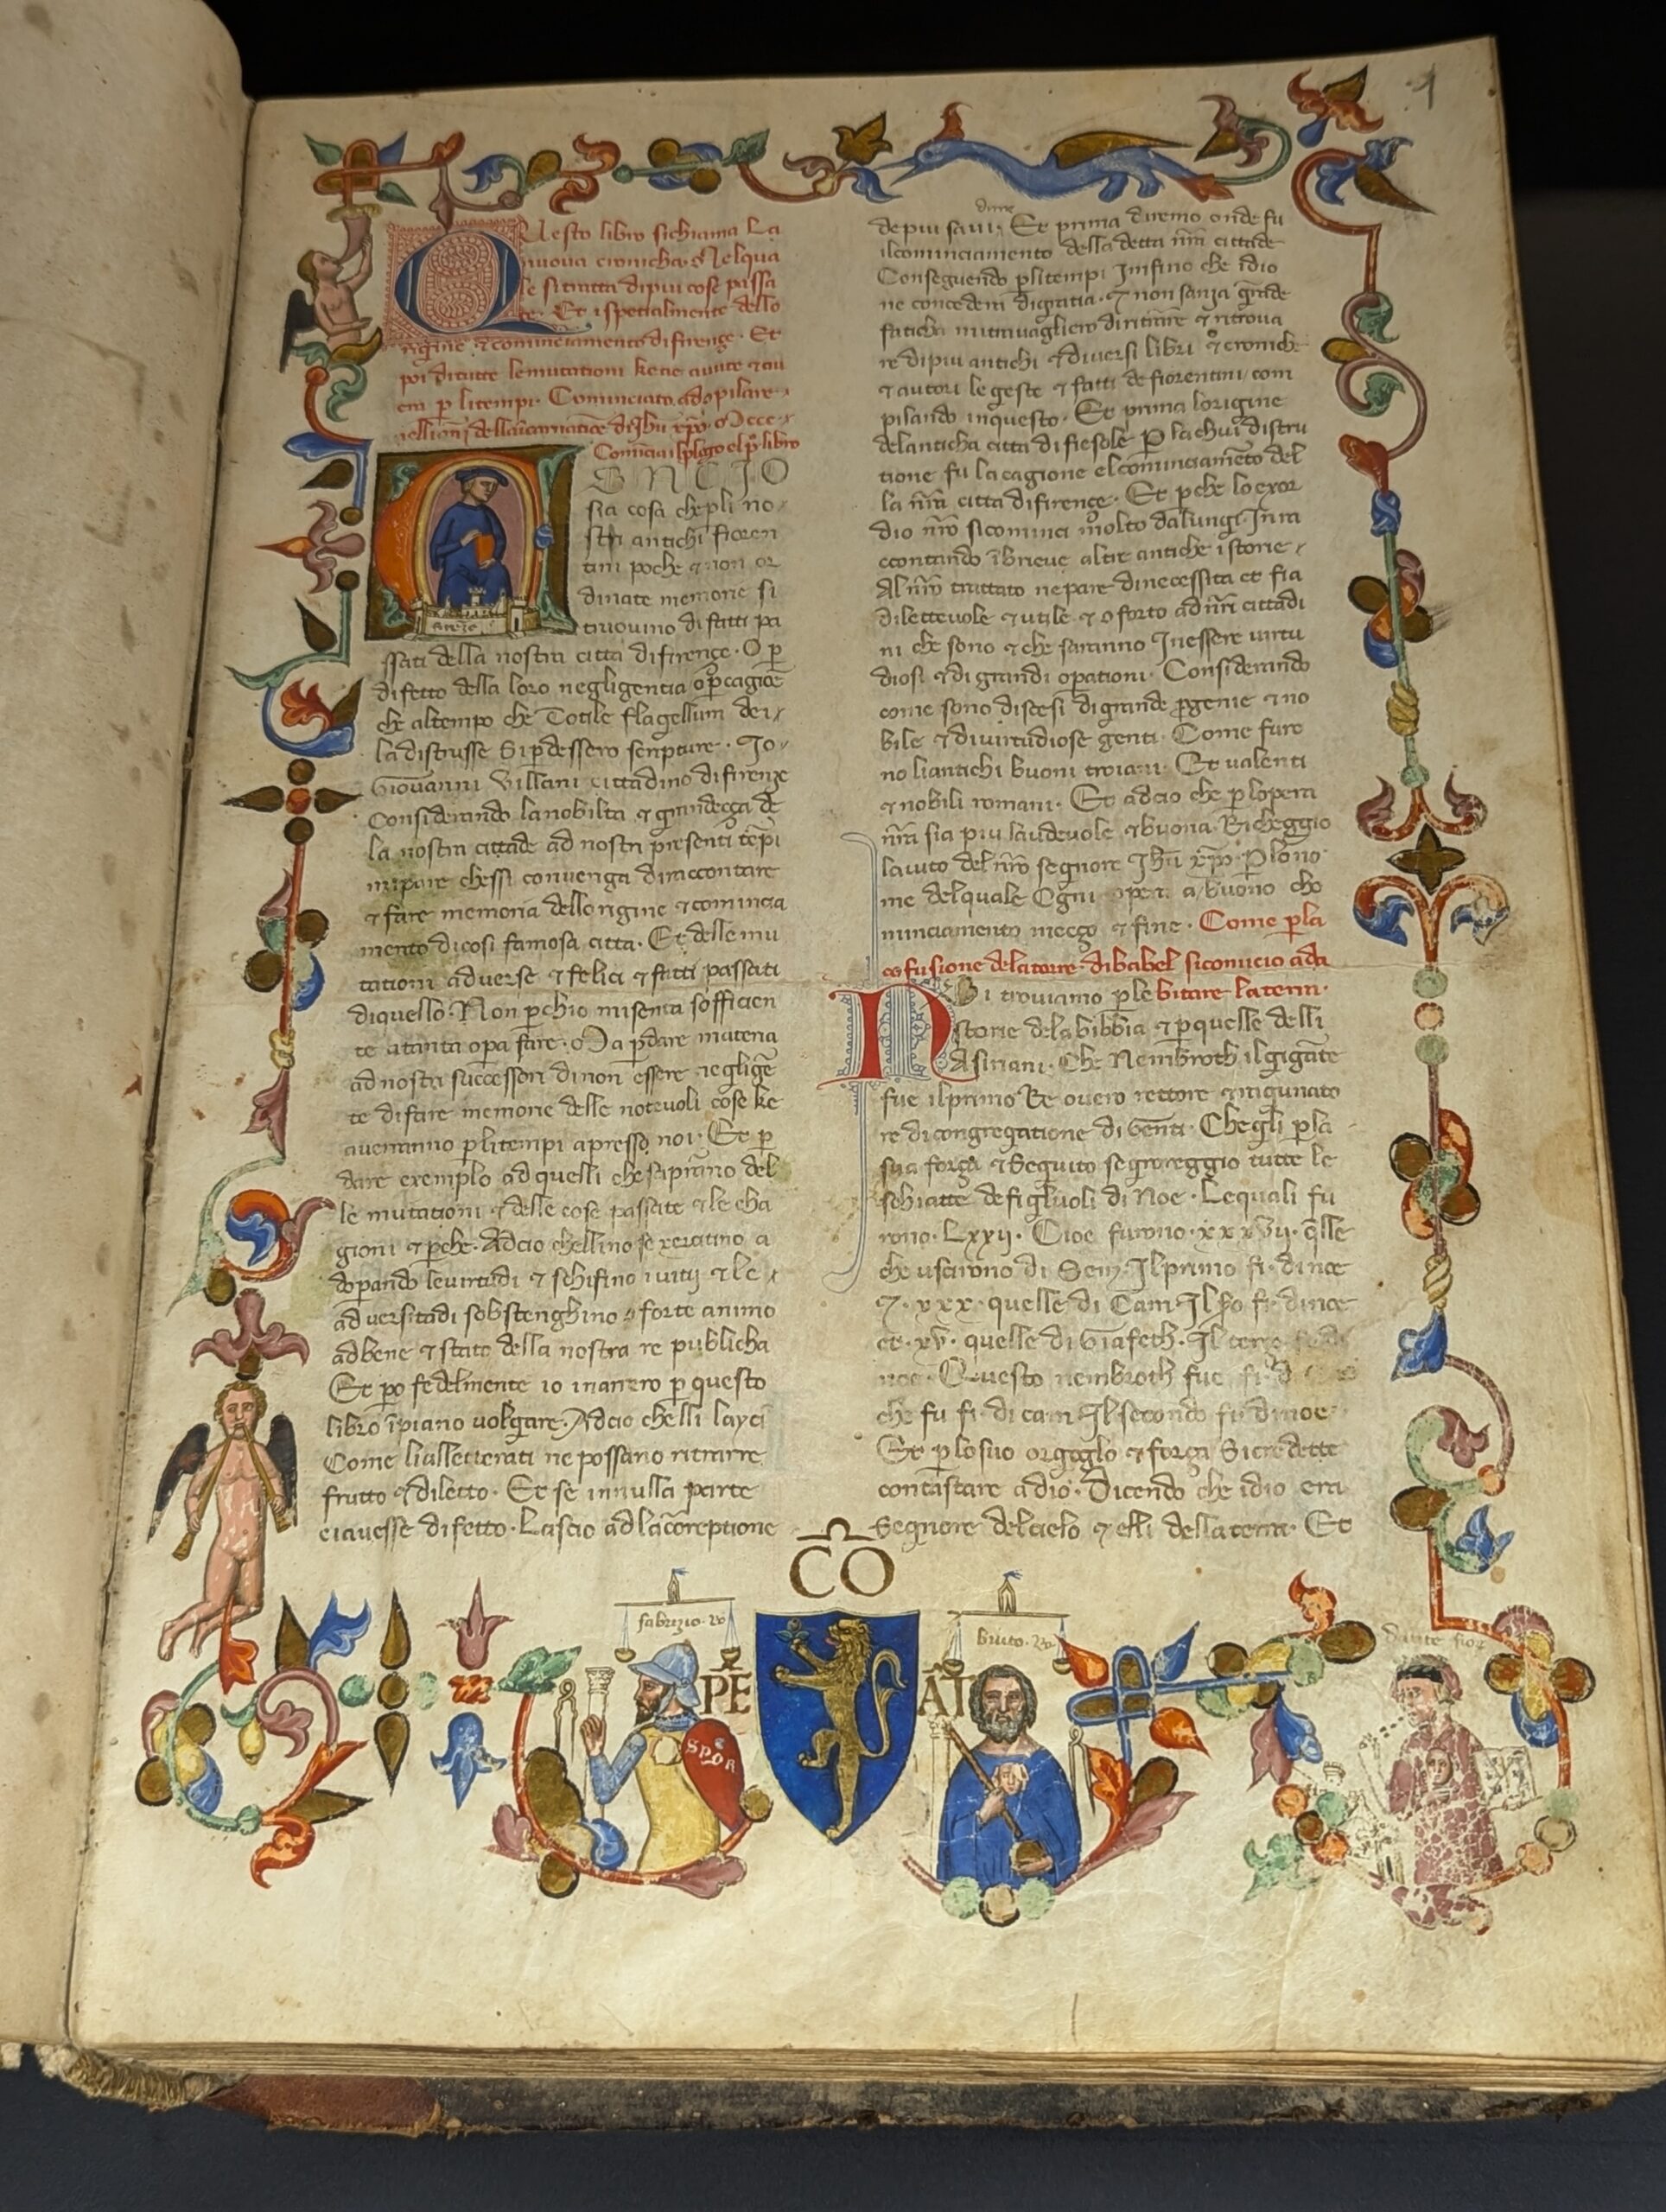 1
Questo libro sichiama La
nuova cronicha. Nelqua
le sitratta dipiu cose passa
te. Et ispetialmente dello
rigine & cominciamento difirenze. Et
poi ditutte lemutationi keae avute & au
em p litempi. Cominciato adopilare
Comicia ilplago el p libro
ONCIO
sia cosa che pli no
stri antichi fioren
tini poche & non or
dinate memorie si
truovino di fatti pa
ssati della nostra citta difirençe. O p
difetto della loro negligencia o p cagioe
che altempo che Totile flagellum dei
la distrusse si pdessero scripture. Io
Giovanni Villani cittadino difirenze
Considerando lanobilta & grandeçça de
la nostra cittade ad nostri presenti tepi
mipare chessi convenga diraccontare
& fare memoria dellorigine & comincia
mento dicosi famosa citta. Et delle mu
tationi adverse & felici & fatti passati
diquello. Non pchio misenta sofficien
te atanta opa fare. Ma p dare materia
ad nostri successori dinon essere neglige
te difare memorie delle notevoli cose ke
averranno plitempi apresso noi. Et p
dare exemplo ad quelli che saprano del
le mutationi & delle cose passate & le cha
gioni & pche. Adcio chellino se xercitino a
dopando levirtudi & schifino ivitij & le
adversitadi sobstenghino forte animo
adbene & stato della nostra re publicha
Et po fedelmente io inarrero p questo
libro ipiano volgare. Adcio che lli layci
Come lialletterati ne possano ritrarre
frutto & diletto. Et se innulla parte
eiavesse difetto. Lascio ad lacoreptione
dire
depiu savi. Et prima diremo onde fu
ilcominciamento della detta nra cittade
Conseguendo plitempi Infino che idio
ne concedera digratia. & non sanza grade
faticha mitravagliero diritrarre & ritrova
re dipiu antichi & diversi libri & croniche
& autori le geste & fatti de fiorentini com
pilando inquesto. Et prima lorigine
delanticha citta di fiesole p lachui distru
tione fu la cagione elcominciameto del
la nra citta difirençe. Et pche lo exor
dio nro sicominci molto dalungi. Inra
ccontando ibrieve altre antiche istorie
Al nro trattato ne pare dinecessita et fia
dilettevole & utile & oforto ad nri cittadi
ni che sono & che saranno Inessere virtu
diosi & di grandi opationi. Considerando
come sono discesi digrande pgenie & no
bile & divirtudiose genti. Come furo
no liantichi buoni troiani. Et valenti
& nobili romani. Et adcio che p lopera
nra sia piu laudevole & buona. Richeggio
laiuto del nro segnore Jhu xpo. P lono
me delquale Ogni opera a buono cho
minciamento meçço & fine. Come pla
cofusione delatorre dibabel sicomicio ada
bitare laterra.
Noi troviamo ple
storie dela bibbia & pquelle delli
Asiriani. Che Nembroth ilgigate
fue ilprimo Re overo rettore & ragunato
re dicongregatione di Genti. Chegli pla
sua força & Seguito segnoreggio tutte le
schiatte defigluoli di Noe. Lequali fu
rono. Lxxij. Cioe furono. xxxvij. qlle
che uscirono di Sem. Ilprimo fi. dinoe
& xxx. quelle di Cam Il so fi dinoe
et. xv. quelle di Giafeth. Il terço
noe. Questo nembroth fue fi. d
che fu fi. di cam Il secondo fi. dinoe
Et p losuo orgoglo & força Sicredette
contastare adio. Dicendo che idio era
Segnore delcielo & elli dellaterra. Et
CO
fabrizio
bruto
PE
AT
SPQR
dante